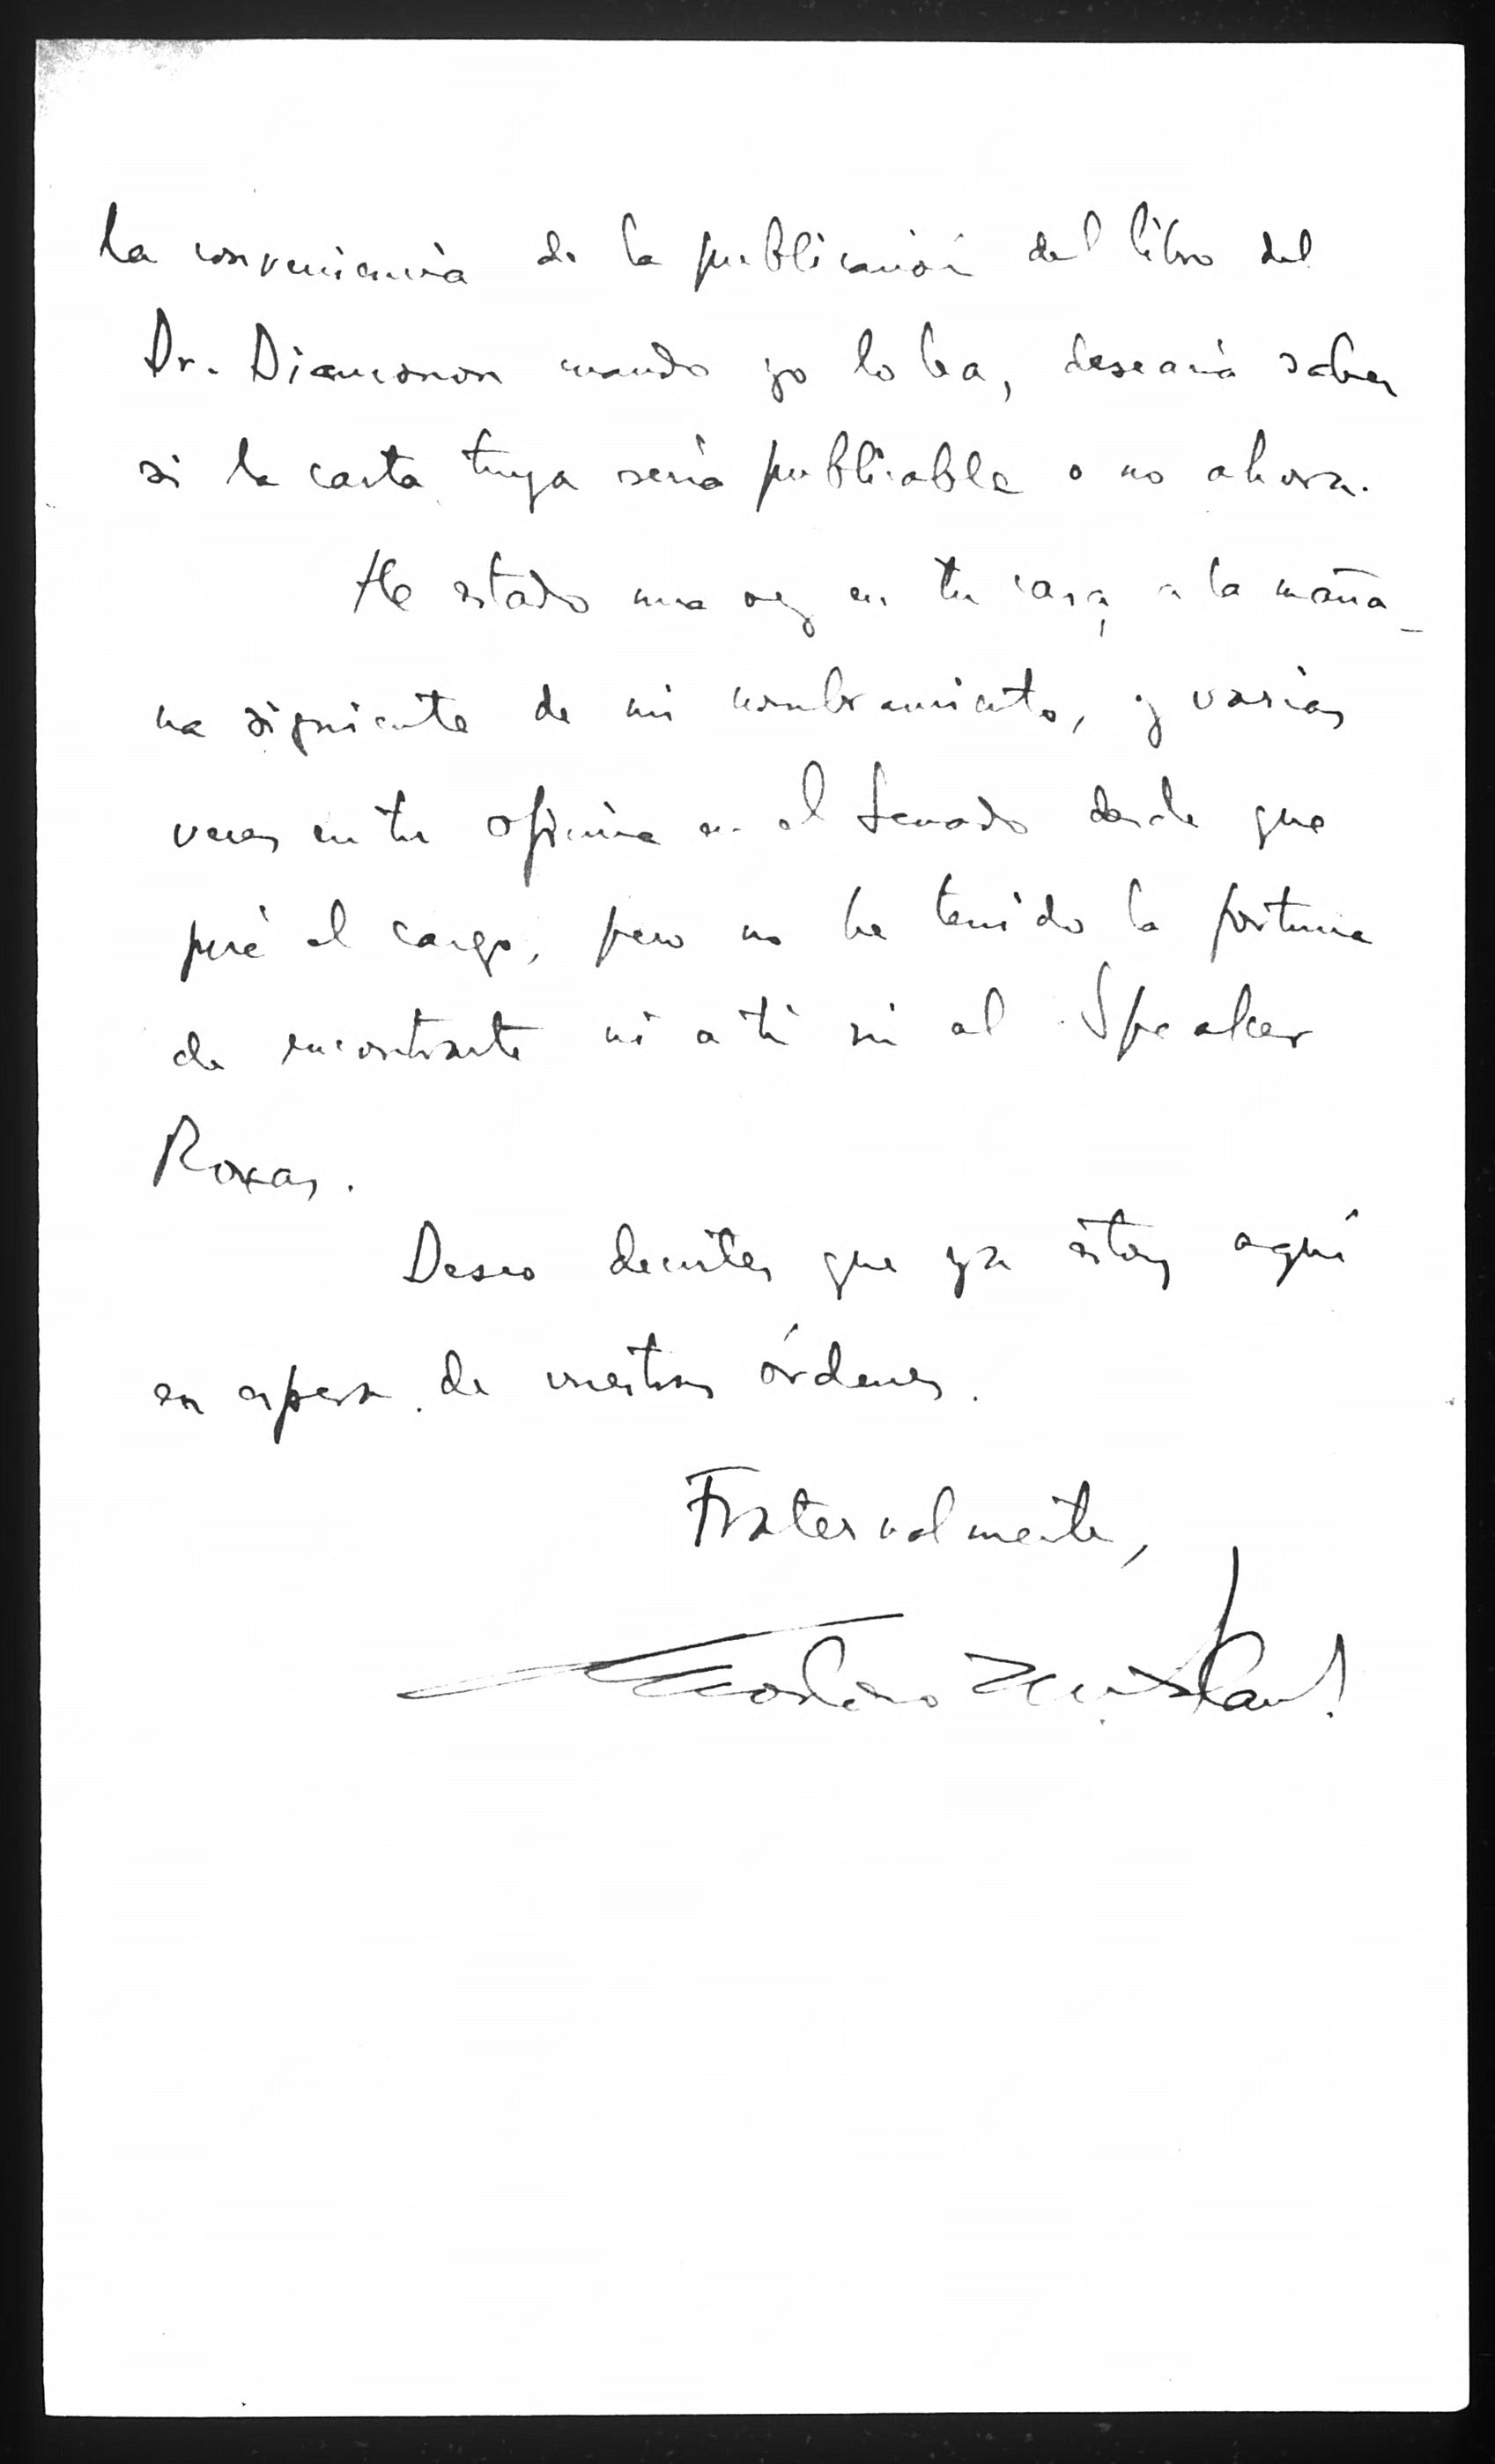 la conveniencia de la publicación del libro del
Dr. Diamonon cuando yo lo lea, desearía saber
si la carta tuya sería publicable o no ahora.
He estado una vez en tu casa, a la maña-
na siguiente de mi nombramiento, y varias
veces en tu oficina en el Senado desde que
juré el cargo, pero no he tenido la fortuna
de encontrarte ni a ti ni al Speaker
Roxas.
Deseo decirtes que ya estoy aquí
en espera de vuestras órdenes.
Fraternalmente,
Teodoro